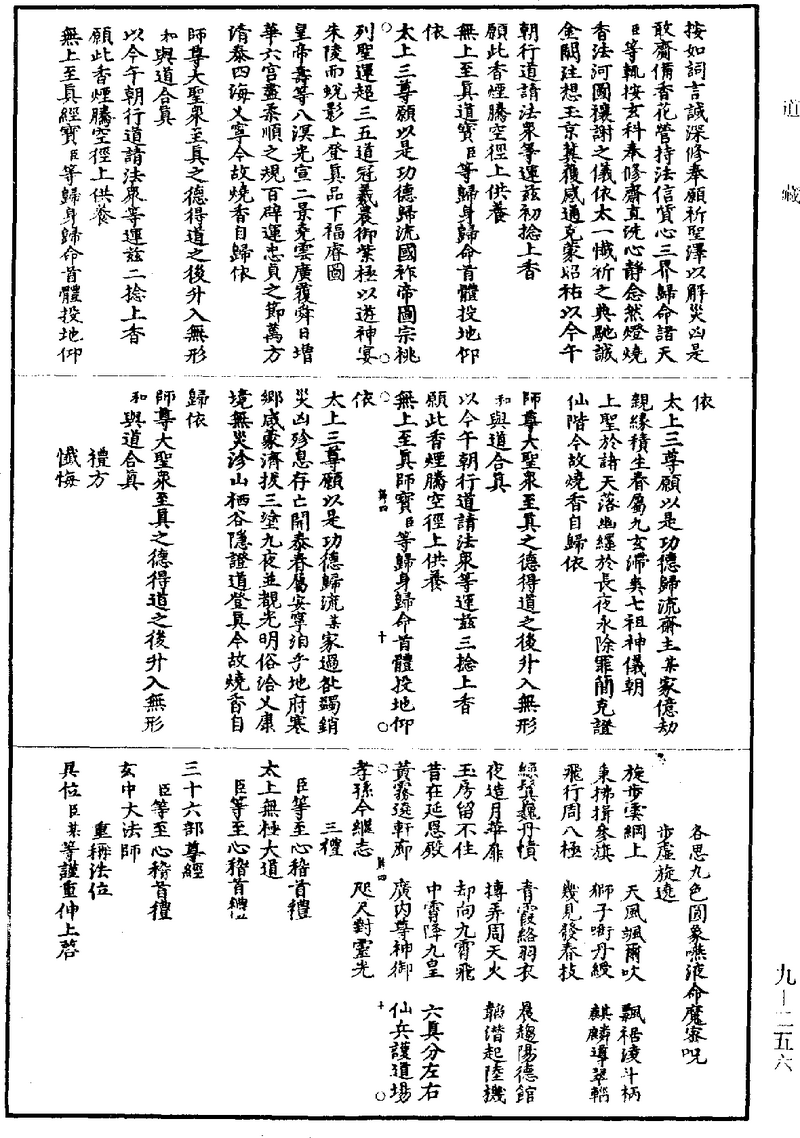 道藏
按如詞言誠深修奉願祈聖澤以解災凶是
敢齋備香花營持法信質心三界歸命諸天
臣等軌按玄科奉修齋直洗心靜念然燈燒
香法河圖禳謝之儀依太一懺祈之典馳誠
金闕注想玉京冀獲感通克蒙昭祐以今午
朝行道請法眾等運茲初捻上香
願此香煙騰空徑上供養
無上至真道寶臣等歸身歸命首體投地仰
依
太上三尊願以是功德歸流國祚帝圖宗祧
列聖運超三五道冠羲農御紫極以遊神宴
朱陵而蛻影上登真品下福睿圖
皇帝壽等八溟光宣二景堯雲廣覆舜日增
華六宮盡柔順之規百辟運忠貞之節萬方
清泰四海乂寧今故燒香自歸依
師尊大聖眾至真之德得道之後升入無形
和與道合真
以今午朝行道請法眾等運茲二捻上香
願此香煙騰空徑上供養
無上至真經寶臣等歸身歸命首體投地仰
依
太上三尊願以是功德歸流齋主某家億劫
親緣積生眷屬九玄滯爽七祖神儀朝
上聖於諸天落幽纆於長夜永除罪簡克證
仙階今故燒香自歸依
師尊大聖眾至真之德得道之後升入無形
和與道合真
以今午朝行道請法眾等運茲三捻上香
願此香煙騰空徑上供養
無上至真師寶臣等歸身歸命首體投地仰
依
太上三尊願以是功德歸流某家過咎蠲銷
災凶殄息存亡開泰眷屬安寧洎乎地府寒
鄉咸蒙濟拔三塗九夜並覩光明俗洽乂康
境無災沴山栖谷隱證道登真今故燒香自
歸依
師尊大聖眾至真之德得道之後升入無形
和與道合真
禮方
懺悔
各思九色圓象嚥液命魔密呪
步虛旋遶
旋步雲綱上 天風颯爾吹 飄裾淩斗柄
秉拂揖參旗 獅子銜丹綬 麒麟導翠輜
飛行周八極 幾見發春枝
綠鬢巍丹幘 青霞絡羽衣 晨趨陽德館
夜造月華扉 摶弄周天火 韜潛起陸機
玉房留不住 却向九霄飛
昔在延恩殿 中霄降九皇 六真分左右
黃霧遶軒廊 廣內尊神御 仙兵護道場
孝孫今繼志 咫尺對靈光
三禮
臣等至心稽首禮
太上無極大道
臣等至心稽首禮
三十六部尊經
臣等至心稽首禮
玄中大法師
重稱法位
具位臣某等謹重伸上啓
九－二五六